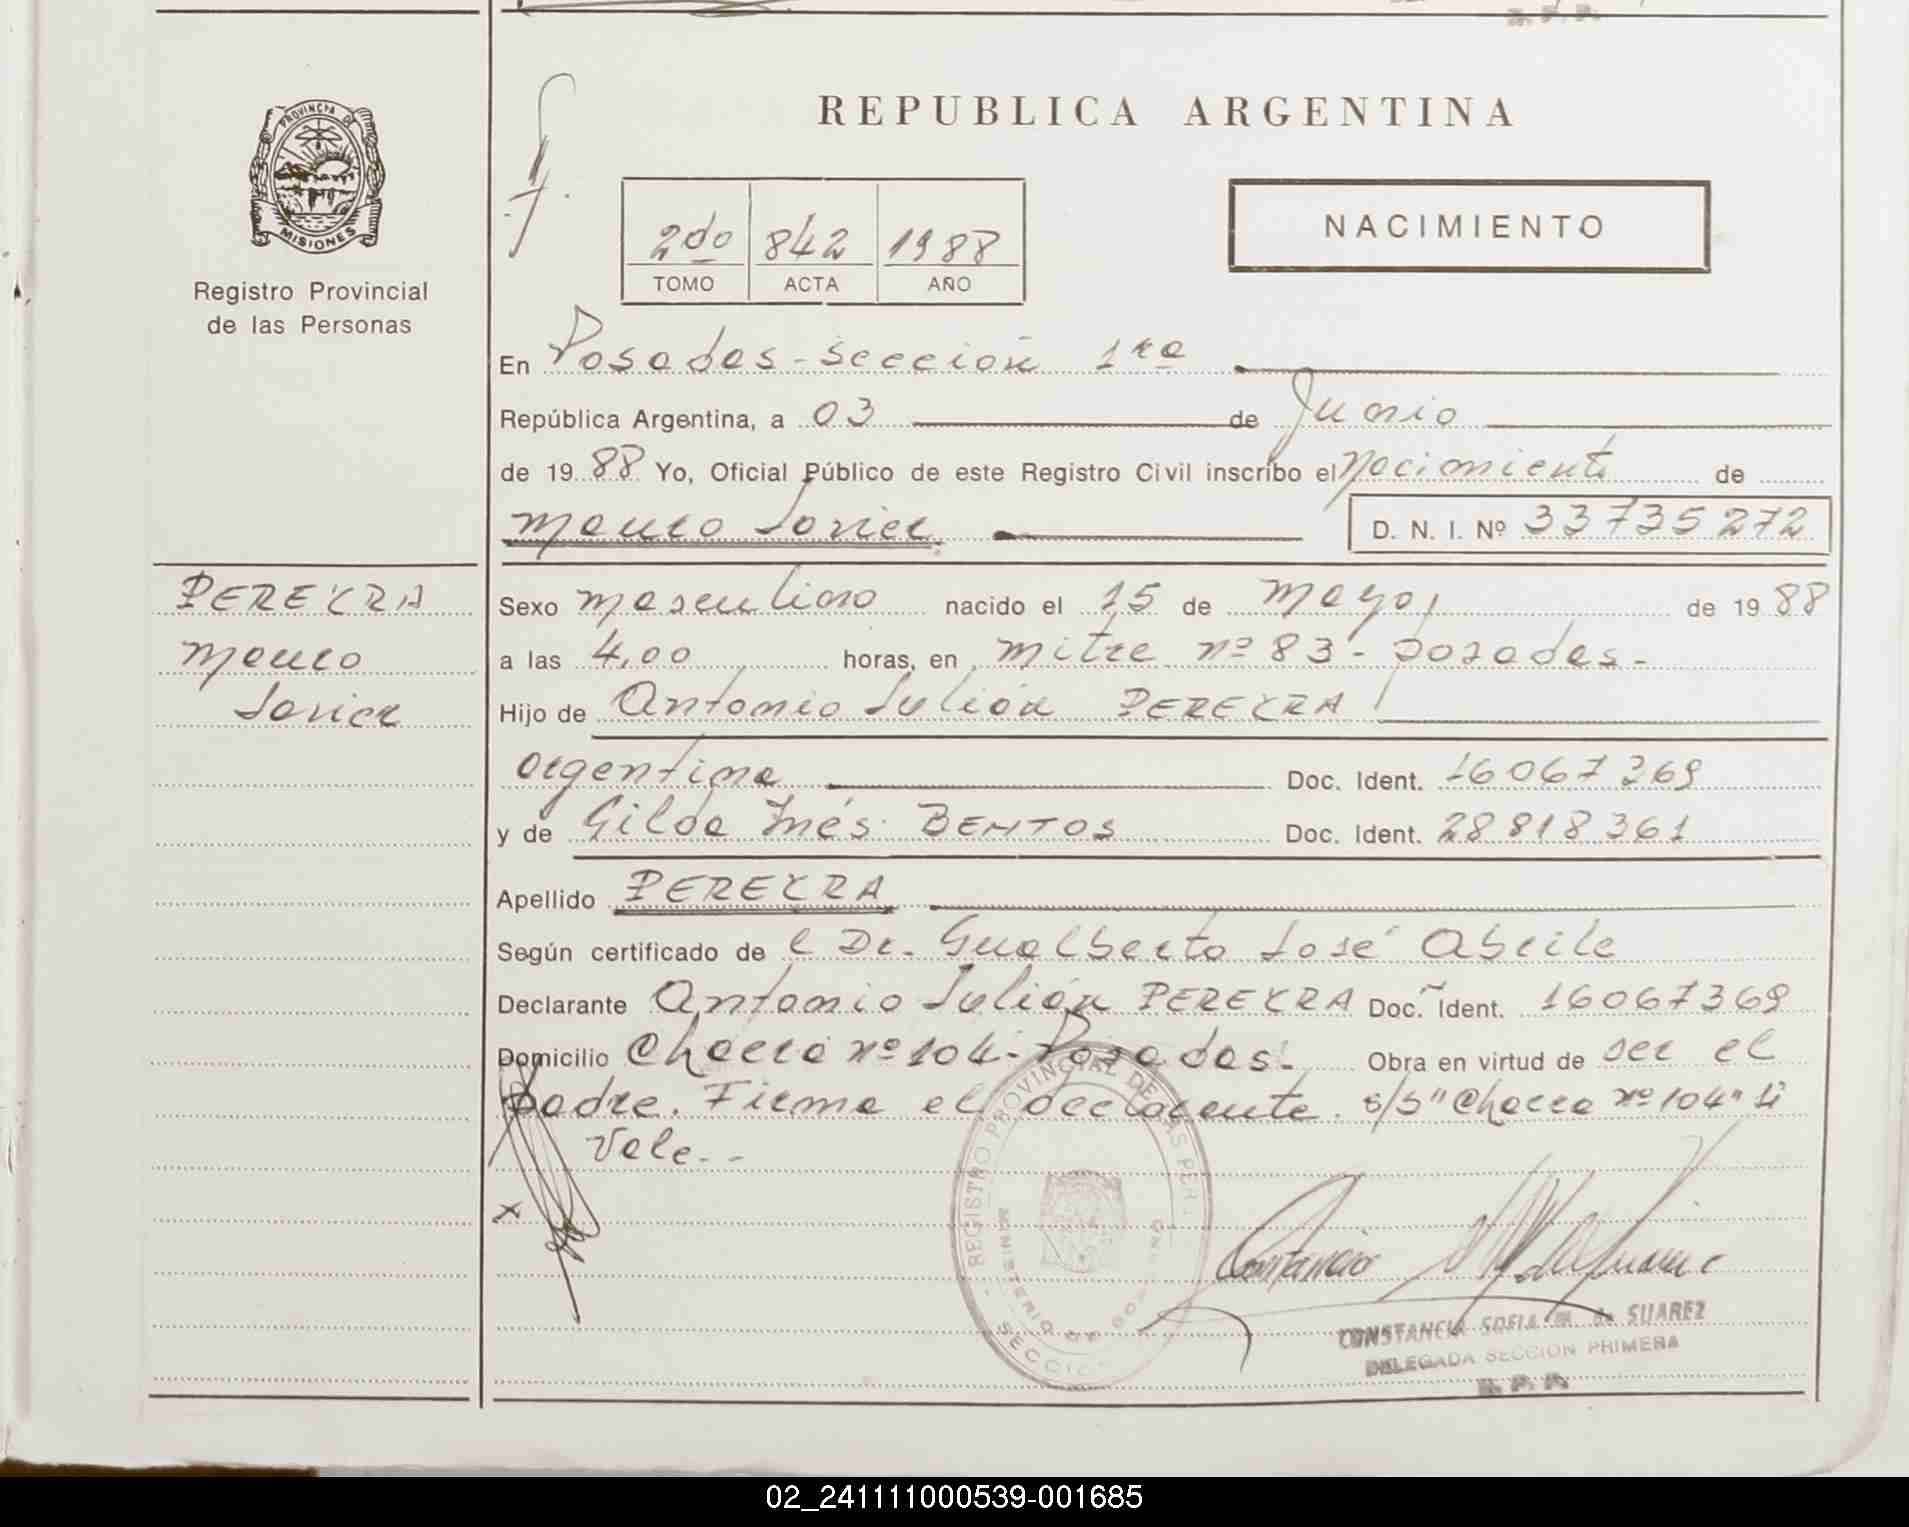 REPUBLICA ARGENTINA
PROVINCIA DE
MISIONES
Registro Provincial
de las Personas
2do 842 1988
TOMO ACTA AÑO
NACIMIENTO
En Posadas - sección 1ra
República Argentina, a 03 de Junio
de 1988 Yo, Oficial Público de este Registro Civil inscribo el Nacimiento de
Mauro Javier D. N. I. Nº 33735272
PEREYRA
Mauro
Javier
Sexo masculino nacido el 15 de Mayo, de 1988
a las 4,00 horas, en mitre nº 83 - posadas -
Hijo de Antonio Julián PEREYRA
argentina Doc. Ident. 16067369
y de Gilda Inés BENTOS Doc. Ident. 28818361
Apellido PEREYRA
Según certificado de l Dr. Gualberto José Abrile
Declarante Antonio Julián PEREYRA Doc. Ident. 16067369
Domicilio Chacra nº 104 - Posadas. Obra en virtud de ser el
padre. Firma el declarante. s/s "Chacra nº 104" Si
Vale. - -
x
REGISTRO PROVINCIAL DE LAS PER.
MINISTERIO DE GOBIERNO
SECCIO
Constancia
CONSTANCIA SOFIA M. de SUAREZ
DELEGADA SECCION PRIMERA
R. P. P.
02_241111000539-001685